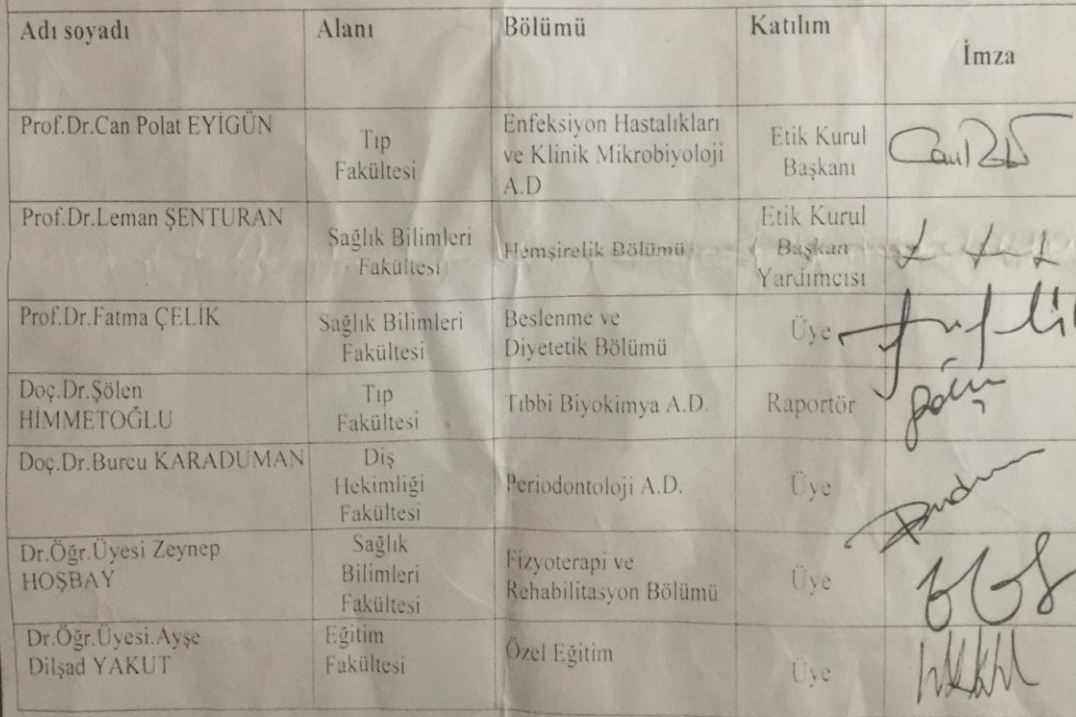 Adı soyadı Alanı Bölümü Katılım İmza
Prof.Dr.Can Polat EYİGÜN
Tıp
Fakültesi
Enfeksiyon Hastalıkları
ve Klinik Mikrobiyoloji
A.D
Etik Kurul
Başkanı
Prof.Dr.Leman ŞENTURAN
Sağlık Bilimleri
Fakültesi
Hemşirelik Bölümü
Etik Kurul
Başkan
Yardımcısı
Prof.Dr.Fatma ÇELİK
Sağlık Bilimleri
Fakültesi
Beslenme ve
Diyetetik Bölümü
Üye
Doç.Dr.Şölen
HİMMETOĞLU
Tıp
Fakültesi
Tıbbi Biyokimya A.D.
Raportör
Doç.Dr.Burcu KARADUMAN
Diş
Hekimliği
Fakültesi
Periodontoloji A.D.
Üye
Dr.Öğr.Üyesi Zeynep
HOŞBAY
Sağlık
Bilimleri
Fakültesi
Fizyoterapi ve
Rehabilitasyon Bölümü
Üye
Dr.Öğr.Üyesi.Ayşe
Dilşad YAKUT
Eğitim
Fakültesi
Özel Eğitim
Üye